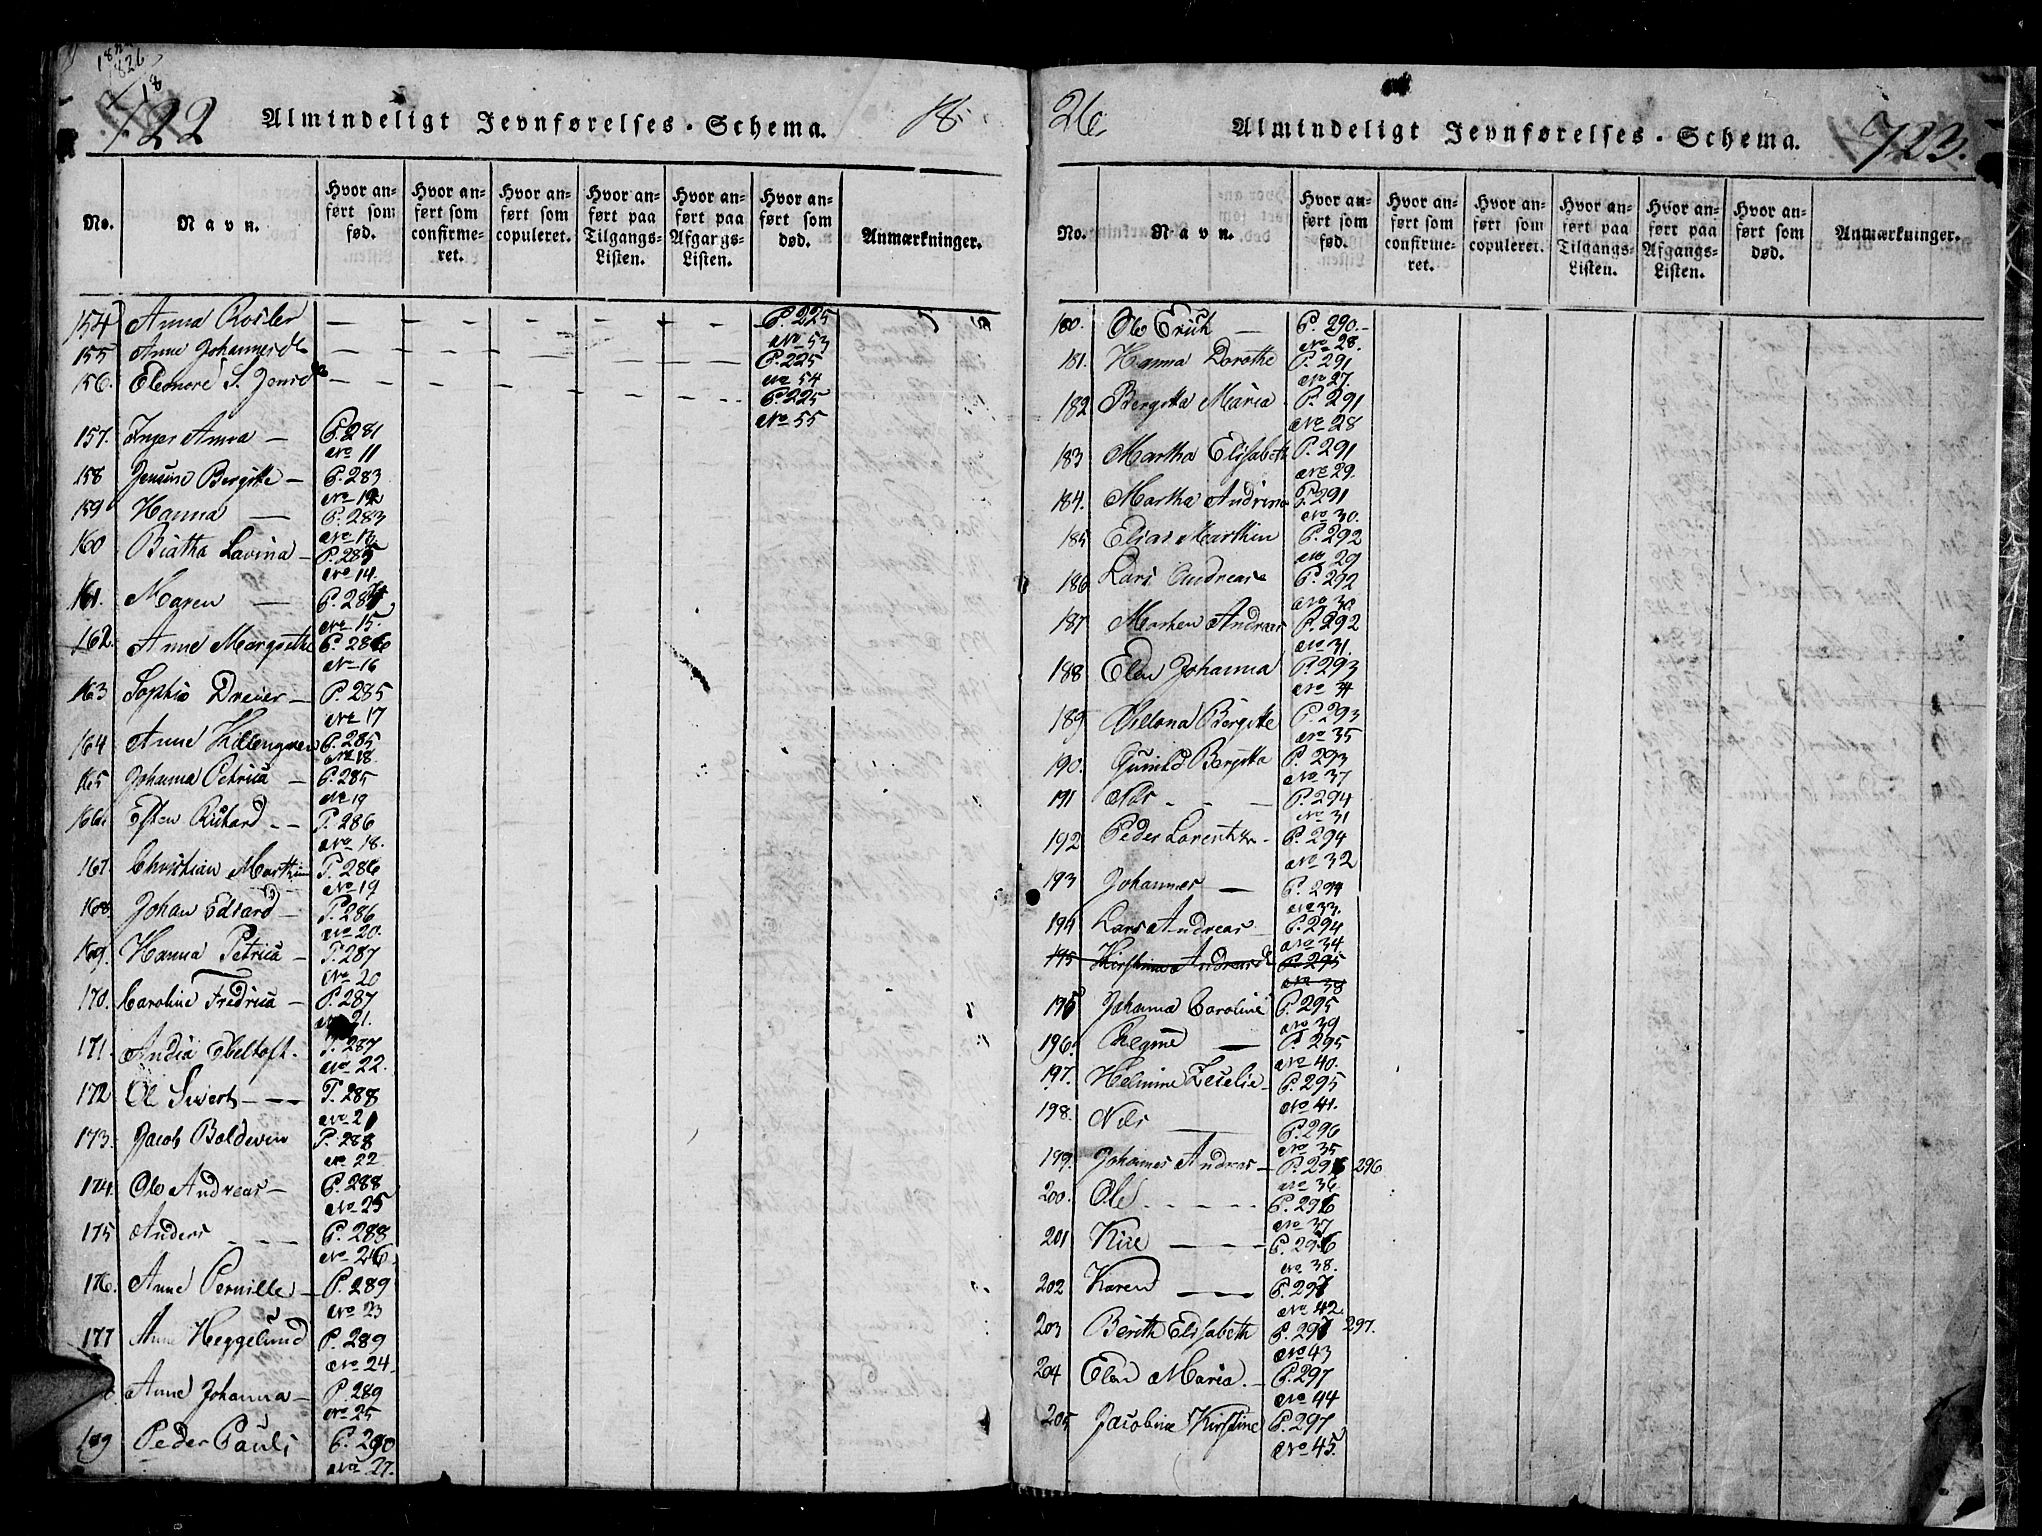 722 Almindeligt Jevnførelses-Schema. 18
No. Navn. Hvor anført som fød. Hvor anført som confirmeret. Hvor anført som copuleret. Hvor anført paa Tilgangs-Listen. Hvor anført paa Afgangs-Listen. Hvor anført som død. Anmærkninger.
154 Anna Rosler — — — — — P. 225 No 53
155 Anne Johannesd. — — — — — P. 225 No 54
156. Eleonore S. Jensd. — — — — — P. 225 No 55
157. Inger Anna — P. 281 No 11
158 Jensine Bergitte — P. 283 No 12
159 Hanna — P. 283 No 13
160 Biatha Lavina — P. 285 No 14.
161. Maren — P. 287 No 15.
162. Anne Margrethe P. 286 No 16
163 Sophie Dreier — P. 285 No 17
164 Anne Killengreen P. 285 No 18.
165 Johanna Petrica — P. 285 No 19
166. Esten Richard — P. 286 No 18.
167. Christian Marthin P. 286 No 19
168 Johan Edvard — P. 286 No 20.
169. Hanna Petrica — P. 287 No 20
170. Caroline Fredrica — P. 287 No 21.
171. Andia Ebeltoft. P. 287 No 22.
172 Ole Sivert — P. 288 No 21
173. Jacob Boldevin P. 288 No 22
174. Ole Andreas — P. 288 No 25
175 Anders — — P. 288 No 26.
176. Anne Pernille — P. 289 No 23
177 Anne Heggelund P. 289 No 24.
Anne Johanna — P. 289 No 25
Peder Pauls P. 290 No 27.
26. Almindeligt Jevnførelses-Schema. 723.
No. Navn. Hvor anført som fød. Hvor anført som confirmeret. Hvor anført som copuleret. Hvor anført paa Tilgangs-Listen. Hvor anført paa Afgangs-Listen. Hvor anført som død. Anmærkninger.
180. Ole Erich — P. 290. No 28.
181. Hanna Dorothe P. 291 No 27.
182 Bergitta Maria P. 291 No 28
183 Martha Elisabeth P. 291 No 29.
184. Martha Andrina P. 291 No 30.
185 Elias Marthin P. 292 No 29
186 Lars Andreas P. 292 No 30
187 Morten Andreas P. 292 No 31.
188 Elen Johanna P. 293 No 34
189 Ellona Bergitte P. 293 No 35
190. Gunild Bergitta P. 293 No 37
191 Nils — P. 294 No 31
192 Peder Lorentz — P. 294 No 32
193 Johannes — P. 294 No 33.
194 Lars Andreas — P. 294 No 34
195 Kirstina Andreasd. P. 295 No 38
195 Johanna Caroline P. 295 No 39
196. Regine — P. 295 No 40.
197. Helmine Zecelie — P. 295 No 41.
198. Nils — P. 296 No 35
199. Johannes Andreas — P. 296 296 No 36
200. Ole — — — P. 296 No 37
201 Kiil — — P. 296 No 38.
202 Karen — — P. 297 No 42
203 Berith Elisabeth P. 297 297. No 43
204 Elen Maria. — P. 297 No 44
205 Jacobine Kirstine P. 297 No 45.